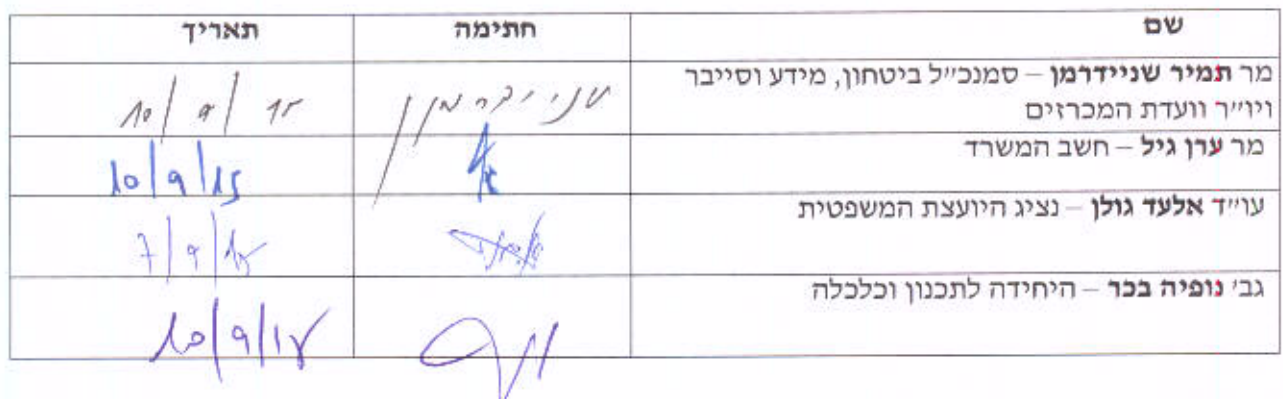 שם חתימה תאריך
מר תמיר שניידרמן – סמנכ״ל ביטחון, מידע וסייבר
ויו״ר וועדת המכרזים שניידרמן 10/9/15
מר ערן גיל – חשב המשרד 10/9/15
עו״ד אלעד גולן – נציג היועצת המשפטית 7/9/15
גב׳ נופיה בכר – היחידה לתכנון וכלכלה 10/9/15